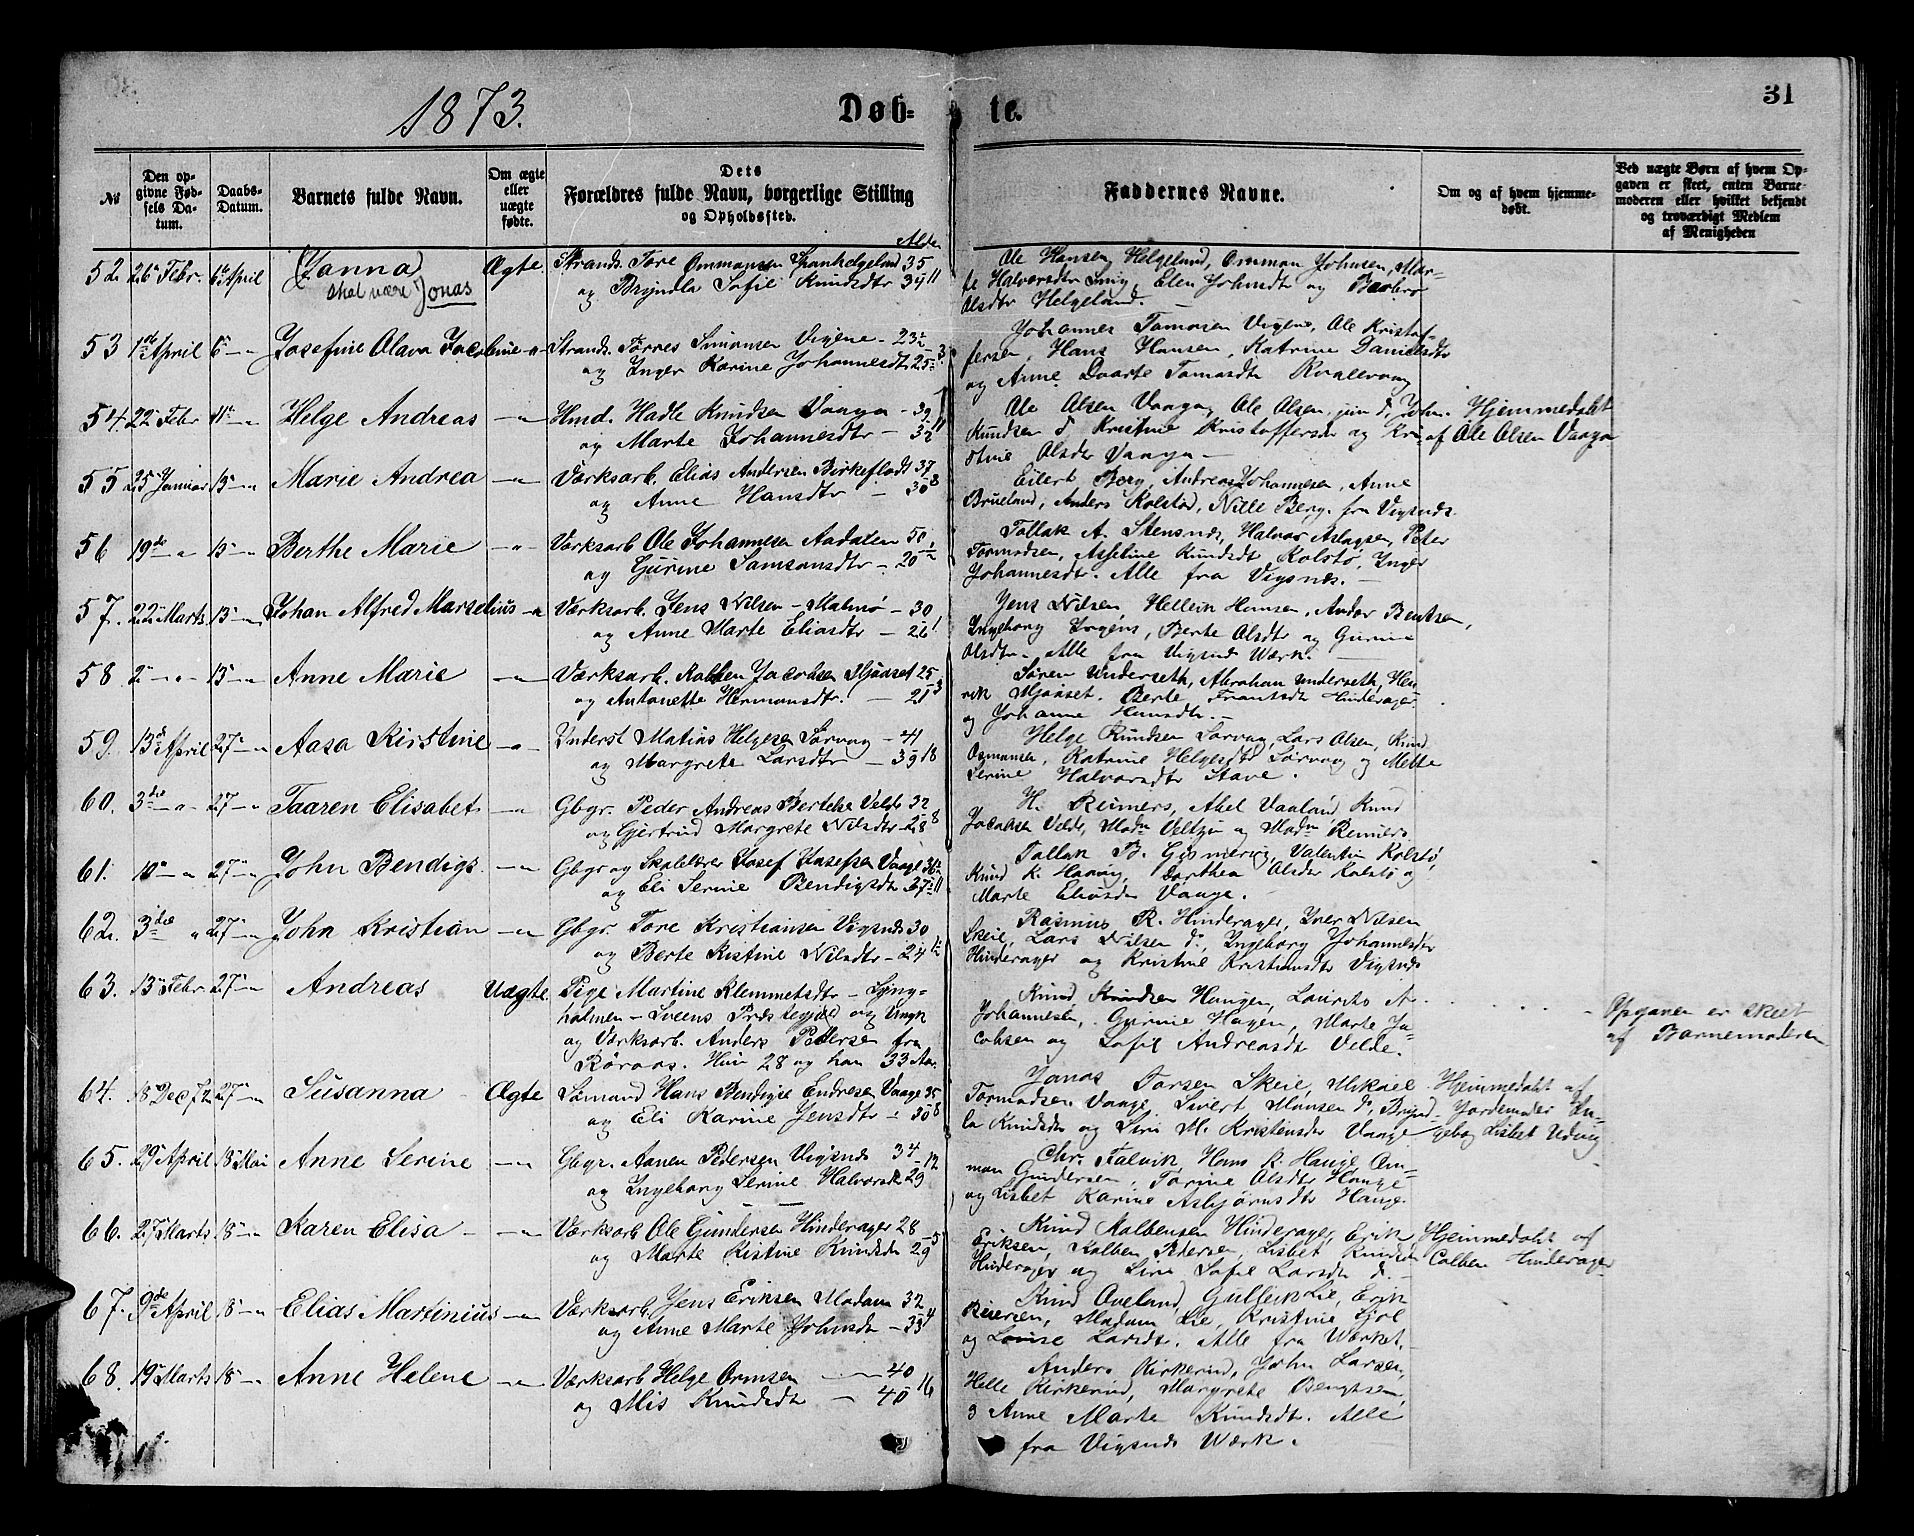 31
1873.
Døb= te.
№
Den op-
givne Fød-
sels Da-
tum.
Daabs-
Datum.
Barnets fulde Navn.
Om ægte
eller
uægte
fødte.
Dets
Forældres fulde Navn, borgerlige Stilling
og Opholdssted.
Alder
Faddernes Navne.
Om og af hvem hjemme-
døbt.
Ved uægte Børn af hvem Op-
gaven er skeet, enten Barne-
moderen eller hvilket bekjendt
og troværdigt Medlem
af Menigheden
52 26 Febr. 6 April Janna Ægte Strands. Tore Ommonsen Spanhelgeland 35
skal være Jonas og Bryndla Sofie Knudsdtr 34 11
Ole Hansen Helgeland, Omman Johnsen, Mar-
te Halvorsdtr, Elen Johnsdtr og Barbro
Olsdtr Helgeland. —
53 1ste April 6 — " Josefine Olava Jacobine — " — Strands. Tørres Simonsen Vigene — 23
og Inger Karine Johannesdtr 25
Johannes Tomasen Vigene, Ole Kristof-
fersen, Hans Hansen, Katrine Danielsdtr
og Anne Daarte Tomasdtr Kvalevaag
54 22 Febr 11 — " Helge Andreas — " — Hmd. Hadle Knudsen Vaaga — 39
og Marte Johannesdtr — 32 11
Ole Olsen Vaaga, Ole Olsen, jun d, John
Knudsen d Kristine Kristoffersdtr og Kri-
stine Olsdtr Vaaga —
Hjemmedøbt
af Ole Olsen Vaaga
55 25 Januar 13 — " Marie Andrea — " — Værksarb. Elias Andersen Birkeflodt 37
og Anne Hansdtr — 30 8
Eilert Berg, Andreas Johannesen, Anne
Brueland, Anders Kolstød, Nille Berg. fra Vigsnæs.
56 19de — " 13 — " Berthe Marie — " — Værksarb Ole Johannesen Aadalen 50
og Gurine Samsonsdtr — 20
Tollak A. Stensnæs, Halvor Aslagsen, Peter
Tormodsen, Asseline Knudsdt Kolstø, Inger
Johannesdtr. Alle fra Vigsnæs. —
57. 22 Marts 13 — " Johan Alfred Marselius — " Værksarb. Jens Nilsen — Malmø — 30
og Anne Marte Eliasdtr — 26 1
Jens Nilsen, Hellein Hansen, Andor Bentsen,
Ingeborg, Berte Olsdtr og Gurine
Olsdtr. Alle fra Vigsnæs Værk.
58 2 — " — 13 — " Anne Marie — " — Værksarb. Kolben Jacobsen Mjaaset 25
og Antonette Hermansdtr. — 21 3
Søren Underseth, Abraham Underseth, Hen-
rik Mjaaset. Berte Frantsdtr Hinderager
og Johanne Hansdtr. —
59. 13de April 27 — " Aasa Kirstine — " — Inderst Matias Helgesen Sørvaag — 41
og Margrete Larsdtr — 39 18
Helge Knudsen Sørvaag, Lars Olsen, Knud
Osmonsen, Katrine Helgesdtr Sørvaag og Mette
Serine Halvorsdtr Stave.
60. 3die — " 27 — " Taaren Elisabet — " — Gbgr. Peder Andreas Bertelse Velde 32
og Gjertrud Margrete Nilsdtr — 28 8
H. Reimers, Abel Vaaland, Knud
Jacobsen Velde, Madm Veltzin og Madm Reimers
61. 10 — " 27 — " John Bendigs. — " — Gbgr og Skolelærer Josef Josefsen Vaage 36
og Eli Serine Bendigsdtr — 37 11
Tollak B. Gismervig, Valentin Kolstø,
Knud K. Havaig, Dorthea Olsdtr Kolstø og
Marte Eliasdtr Vaage.
62. 3die " 27 — " John Kristian — " — Gbgr. Tore Kristiansen Vigsnæs 30
og Berte Kistine Nilsdtr — 24
Rasmus R. Hinderager, Iver Nilsen
Skeie, Lars Nilsen d, Ingeborg Johannesdtr
Hinderager og Kristine Kristiansdtr Vigsnæs
63. 13 Febr 27 — " Andreas Uægte. Pige Martine Klemmetsdtr — Lyng-
holmen — Sveens Præstegjæld og Ungk
og Værksarb. Anders Pedersen fra
Röraas. Hun 28 og han 33 Aar
Knud Knudsen Haugen, Lauritz A
Johannesen, Gurine Hagen, Marte Ja-
cobsen og Sofie Andreasdtr Velde.
Opgaven er skeet
af Barnemoderen
64. 18 Dec 72 27 — " Susanna Ægte Sømand Hans Bendigse Endresen Vaage 35
og Eli Karine Jensdtr — 30 8
Jonas Torsen Skeie, Mikael
Tormodsen Vaage, Sivert Monsen d, Brynd-
la Knudsdtr og Siri M. Kristensdtr Vaage
Hjemmedøbt af
Jordemoder In-
geborg Lisbet Udvig
65. 29 April 18 Mai Anne Serine — " — Gbgr. Aanen Pedersen Vigsnæs 34 12
og Ingeborg Serine Halvorsdtr 29
Chr. Falvik, Hans K. Hauge, Om-
mon Gundersen, Torine Olsdtr Hauge
og Lisbet Karine Asbjørnsdtr Hauge.
66. 27 Marts 18 — " Karen Elisa — " — Værksarb Ole Gundersen Hinderager 28
og Marte Kistine Knudsdtr 29 5
Knud Kolbensen Hinderager, Erik
Eriksen, Kolben Pedersen, Lisbet Knudsdtr
Hinderager og Siri Sofie Larsdtr d. —
Hjemmedøbt af
Colben Hinderager
67. 9de April 18 — " Elias Martinius — " — Værksarb. Jens Eriksen Modam 32
og Anne Marte Johnsdtr — 33 4
Knud Aveland, Gulleik Lie, Erik
Beiersen, Madam Lie, Kristine Gjøl
og Louise Larsdtr. Alle fra Værket.
68. 19 Marts 18 — " Anne Helene — " — Værksarb Helge Ormsen — 40
og Mis Knudsdtr — 40 16
Anders Kirkerud, John Larsen,
Helle Kirkerud, Margrete Bengtsen,
& Anne Marte Knudsdtr. Alle
fra Vigsnæs Værk.